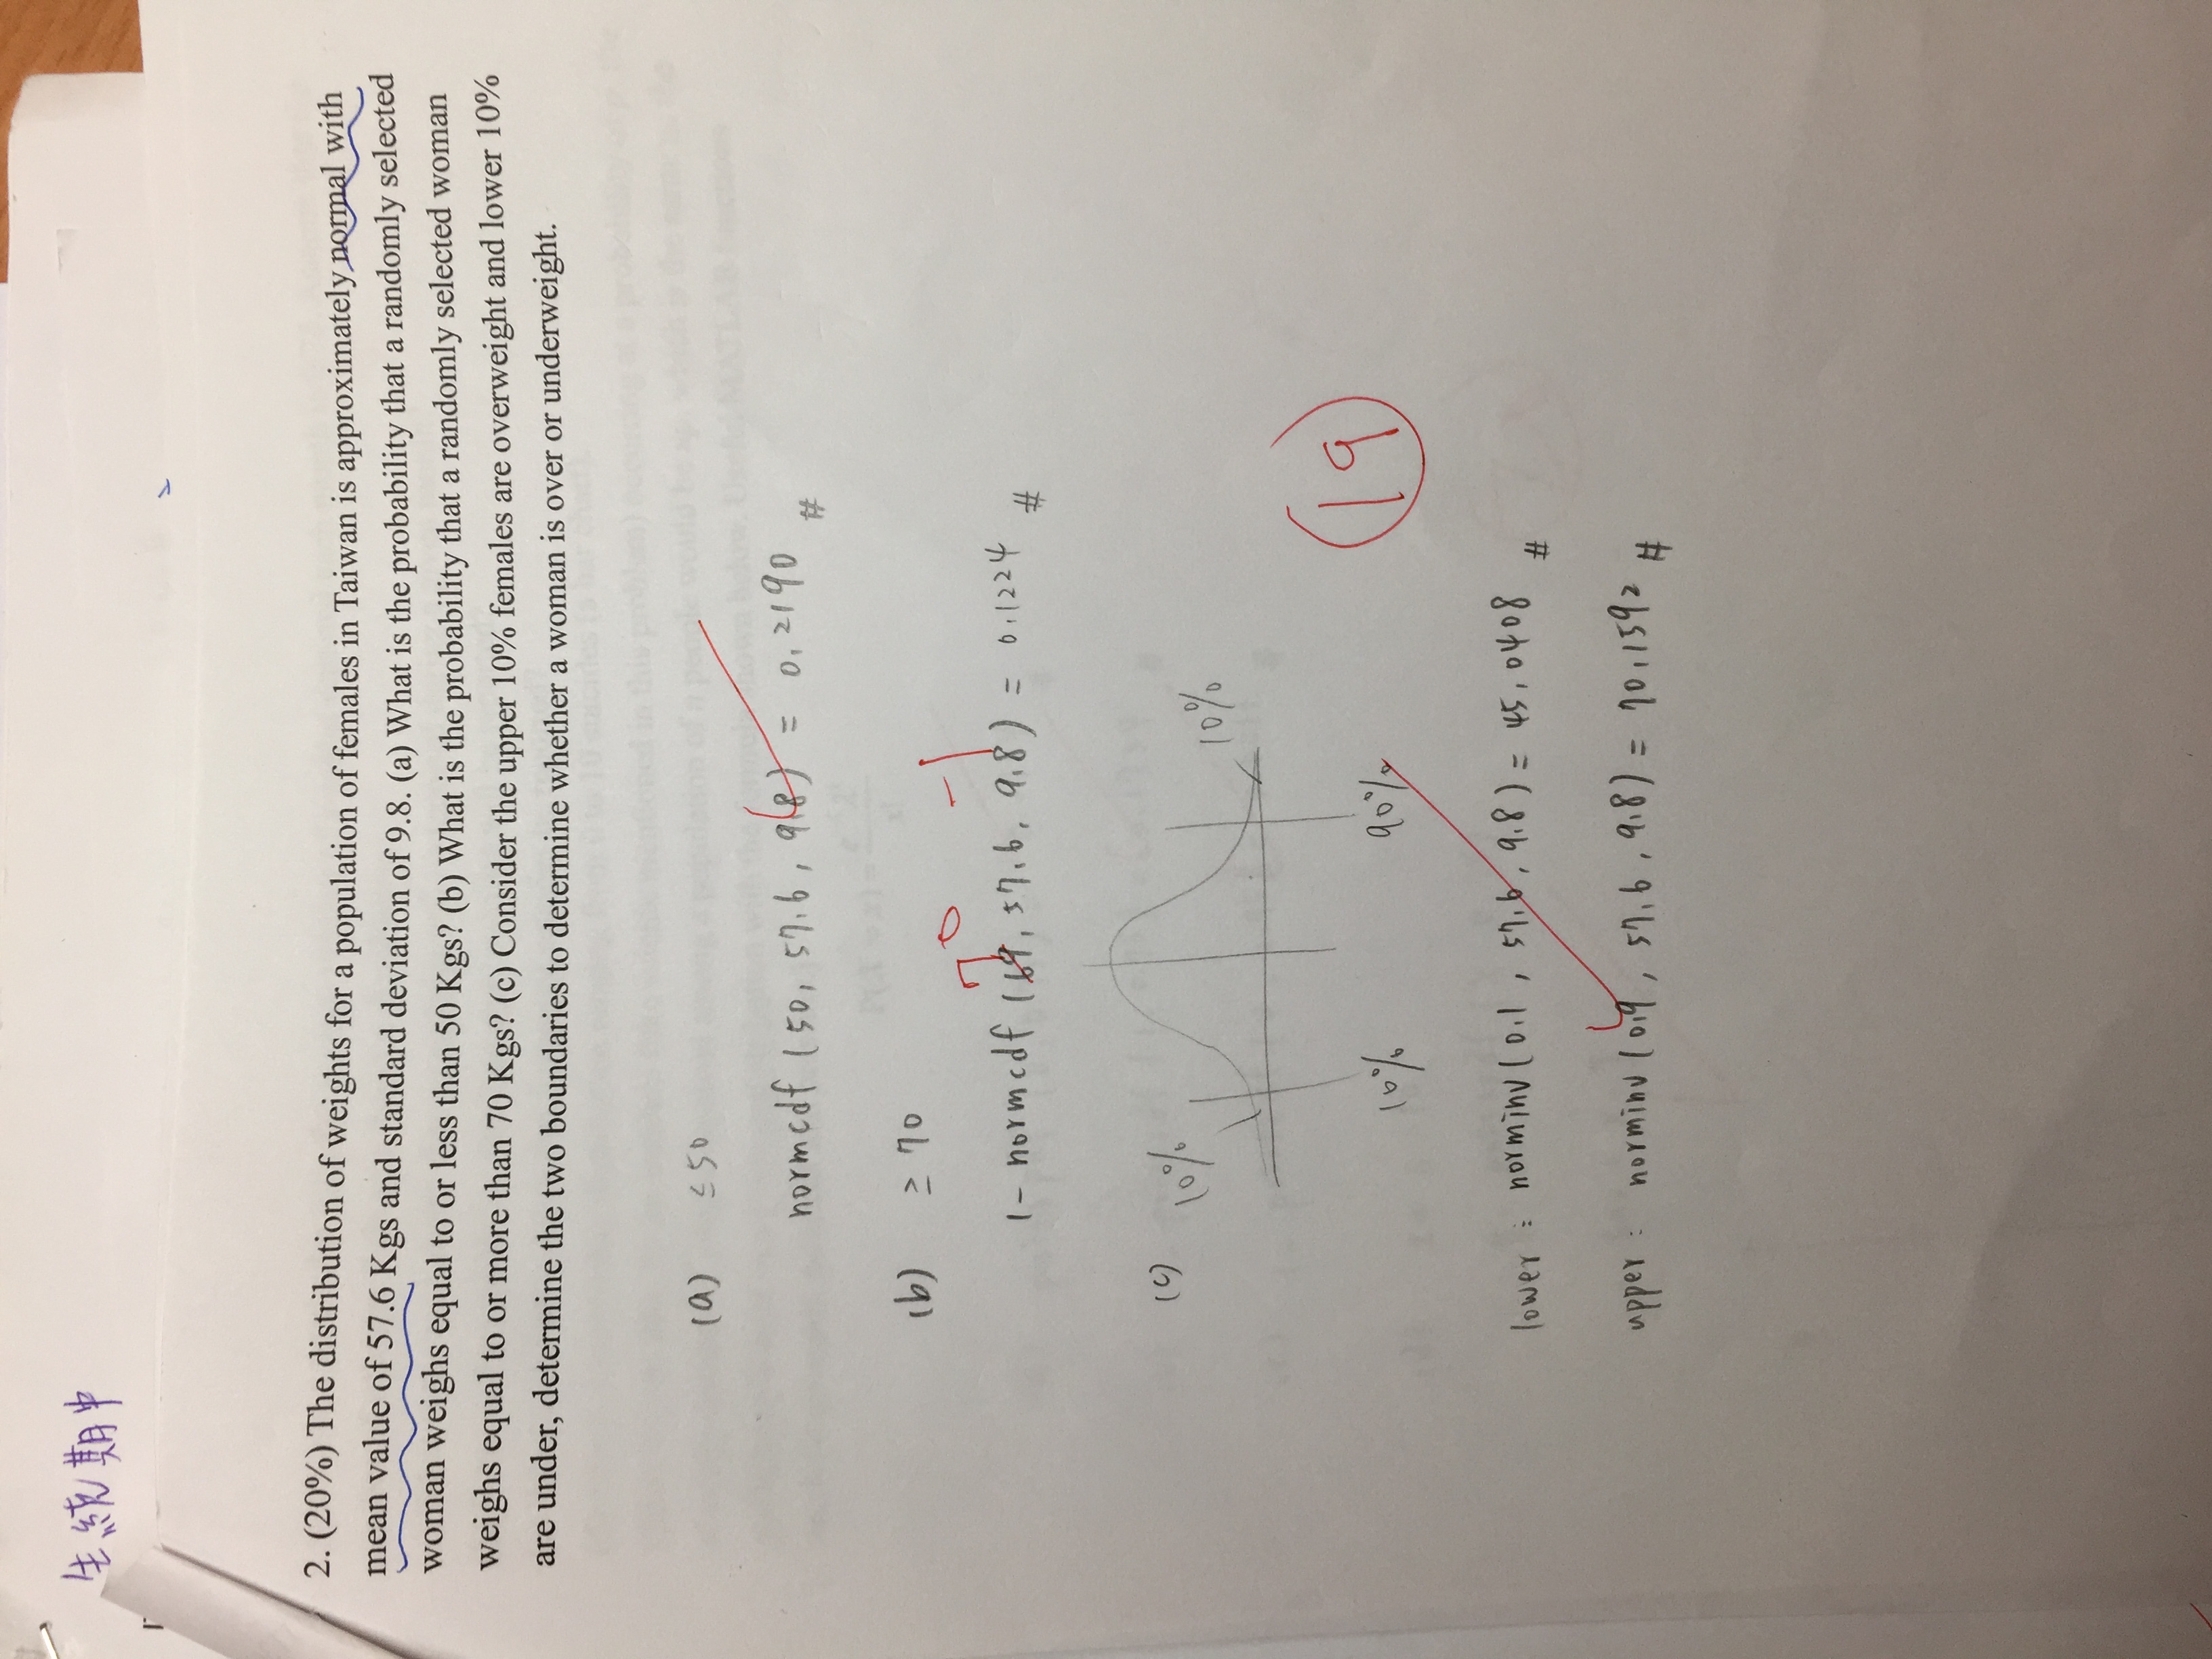 生統期中
2. (20%) The distribution of weights for a population of females in Taiwan is approximately normal with
mean value of 57.6 Kgs and standard deviation of 9.8. (a) What is the probability that a randomly selected
woman weighs equal to or less than 50 Kgs? (b) What is the probability that a randomly selected woman
weighs equal to or more than 70 Kgs? (c) Consider the upper 10% females are overweight and lower 10%
are under, determine the two boundaries to determine whether a woman is over or underweight.
(a) ≤ 50
normcdf (50, 57.6, 9.8) = 0.2190 #
(b) ≥ 70
70 -1
1 - normcdf (69, 57.6, 9.8) = 0.1224 #
(c) 10% 10%
10% 90%
19
lower : norminv (0.1, 57.6, 9.8) = 45.0408 #
upper : norminv (0.9, 57.6, 9.8) = 70.1592 #